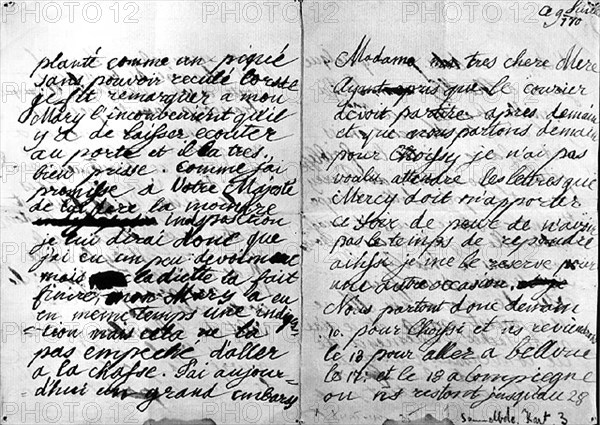 planté comme un piqué
sans pouvoir reculé lorsse
je fit remarquer a mon
Mary l'inconvenient qu'il
y a de laisser ecouter
au porte et il la tres
bien prisse. Comme j'ai
promise à Votre Majesté
de lui dire la moindre
indisposition
je lui dirai donc que
j'ai eu un peu devoiment
mais la diette ta fait
finire, mon Mary a eu
en meme temps une indige
=tion mais cela ne lui
pas empeché d'aller
a la chasse. J'ai aujour-
d'hui un grand embary
ce 9 Juillet
1770
Madame tres chere Mere
Ayant apris que le courier
devoit partire apres demain
et que nous partons demain
pour Choisy je n'ai pas
voulu attendre les letres que
Mercy doit m'apporter
ce soix de peur de n'avoir
pas le temps de repondre
ainsi je me le reserve pour
une autre occasion.
Nous partont donc demain
10. pour Choisi et ns reviendrons
le 13 pour aller a bellvue
le 17. et le 18 a Compiegne
ou ns restont jusqu'au 28
Sammelbde, Kart 3